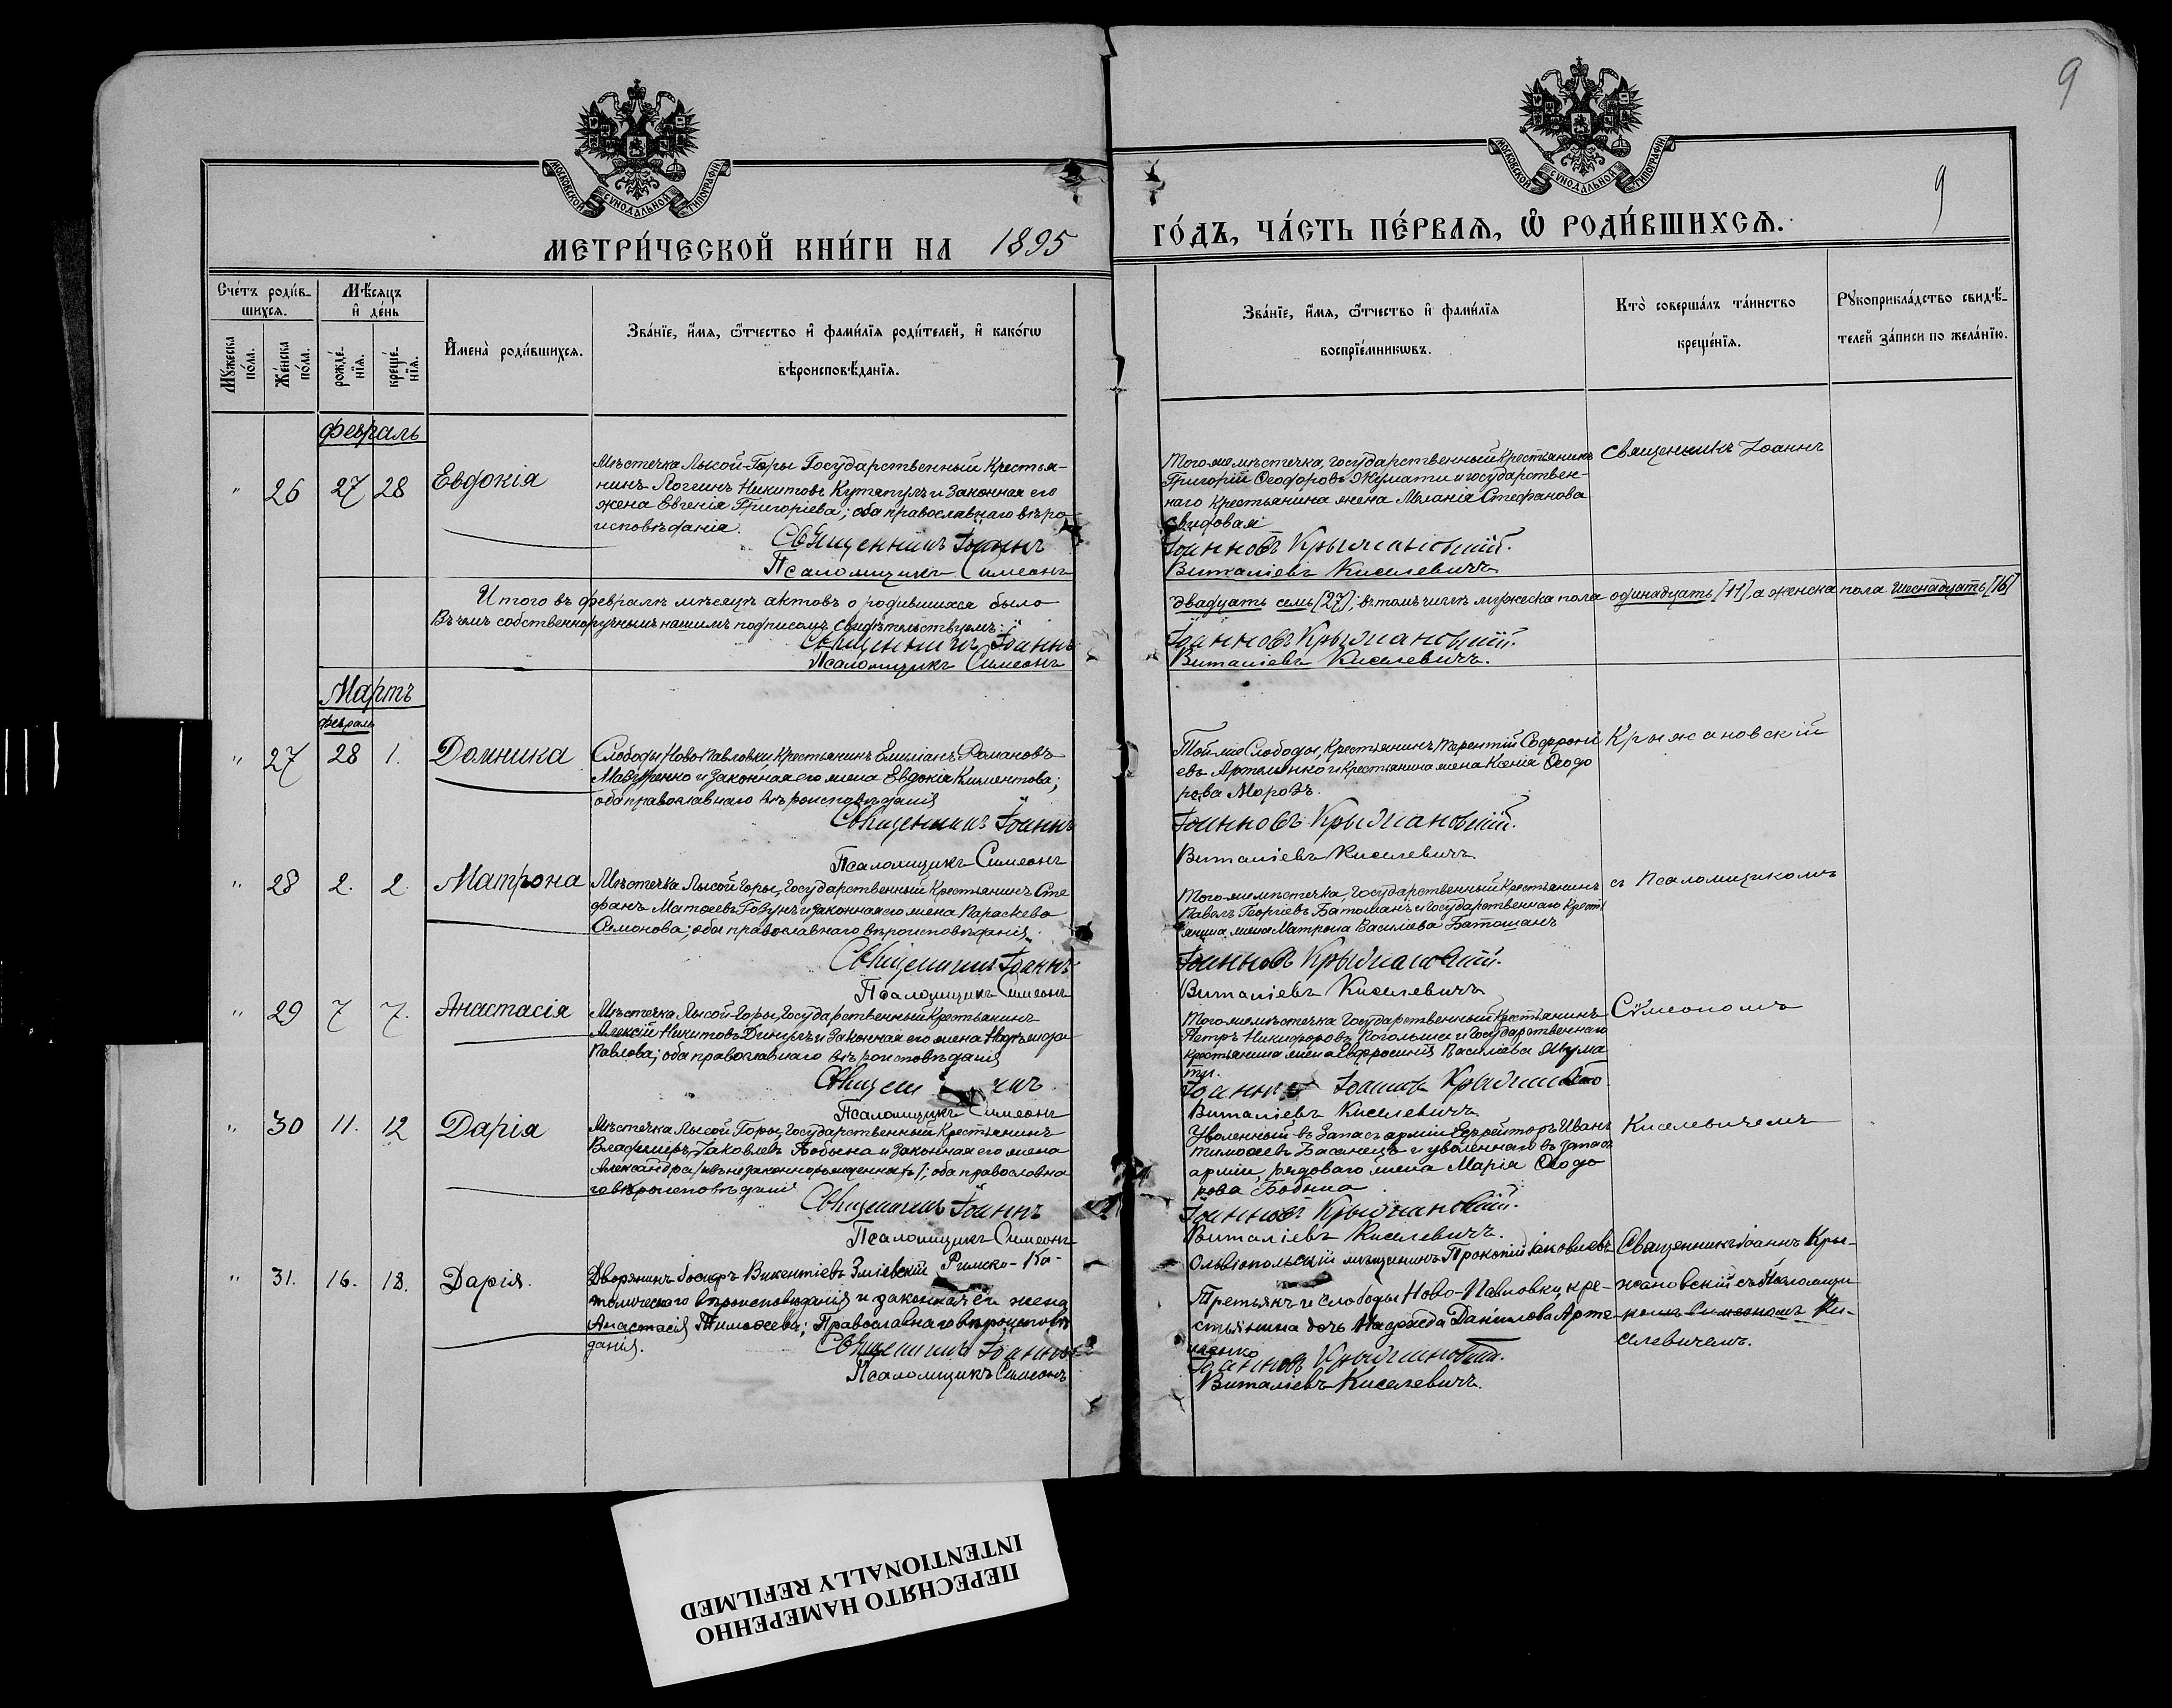 9
9
МОСКОВСКОЙ СѴНОДАЛЬНОЙ ТИПОГРАФІИ
МОСКОВСКОЙ СѴНОДАЛЬНОЙ ТИПОГРАФІИ
МЕТРИ́ЧЕСКОЙ КНИ́ГИ НА 1895
ГО́ДЪ, ЧА́СТЬ ПЕ́РВАЯ, Ѽ РОДИ́ВШИХСЯ.
Сче́тъ роди́в-
шихся.
Мѣ́сяцъ
и҆ де́нь
Мꙋ́жеска
по́ла.
Же́нска
по́ла.
рожде́-
нїя.
креще́-
нїя.
И҆мена̀ роди́вшихся.
Зва́нїе, и҆́мя, ѻ҆́тчество и҆ фами́лїя роди́телей, и҆ како́гѡ
вѣроисповѣ́данїя.
Зва́нїе, и҆́мя, ѻ҆́тчество и҆ фами́лїя
воспрїе́мникѡвъ.
Кто̀ соверша́лъ та́инство
креще́нїя.
Рꙋкоприкла́дство свидѣ́-
телей за́писи по жела́нїю.
Февраль
" 26 27 28 Евдокія
Мѣстечка Лысой-Горы Государственный Крестья-
нинъ Логгинъ Никитовъ и законная его
жена Евгенія Григоріева; оба православнаго вѣро
исповѣданія.
Священникъ Іоаннъ
Псаломщикъ Симеонъ
Того-же мѣстечка, государственный Крестьянинъ
Григорій Ѳеодоровъ Якумати и государствен-
наго Крестьянина жена Меланія Стефанова
Іоанновъ Крыжановскій.
Виталіевъ Киселевичъ
Священникъ Іоаннъ
Итого въ февралѣ мѣсяцѣ актовъ о родившихся было
двадцать семь [27]; въ томъ числѣ мужеска пола одинадцать [11], а женска пола шеснадцать [16]
Въ чемъ собственноручнымъ нашимъ подписомъ свидѣтельствуемъ:
Священникъ Іоаннъ
Псаломщикъ Симеонъ
Іоанновъ Крыжановскій.
Виталіевъ Киселевичъ.
Мартъ
Февраль
" 27 28 1. Домника
Слободы Ново-Павловки, Крестьянинъ Емиліанъ Романовъ
и законная его жена Евдокія Климентова;
оба православнаго вѣроисповѣданія
Священникъ Іоаннъ
Псаломщикъ Симеонъ
Той-же Слободы, Крестьянинъ Терентій Софроні
евъ Артеменко и крестьянина жена Ксенія Ѳеодо
рова Морозъ.
Іоанновъ Крыжановскій.
Виталіевъ Киселевичъ
Крыжановскій
" 28 2. 2. Матрона
Мѣстечка Лысой Горы, Государственный Крестьянинъ Сте
фанъ Матѳеевъ и законная его жена Параскева
Симонова; оба православнаго вѣроисповѣданія.
Священникъ Іоаннъ
Псаломщикъ Симеонъ
Того-же мѣстечка, Государственный Крестьянинъ
Павелъ Георгіевъ Батошанъ и Государственнаго Крест
янина жена Матрона Василіева Батошанъ
Іоанновъ Крыжановскій.
Виталіевъ Киселевичъ
съ Псаломщикомъ
" 29 7 7. Анастасія
Мѣстечка Лысой-Горы, Государственный Крестьянинъ
Алексій Никитовъ и законная его жена
Павлова; оба православнаго вѣроисповѣданія
Псаломщикъ Симеонъ
Того-же мѣстечка Государственный Крестьянинъ
Петръ Никифоровъ и Государственнаго
крестьянина жена Евфросинія Василіева Якума
ти.
Виталіевъ Киселевичъ
Сѵмеономъ
" 30 11. 12 Дарія
Мѣстечка Лысой Горы, Государственный Крестьянинъ
Владиміръ Іаковлевъ Бобына и законная его жена
Александра; оба православна
го вѣроисповѣданія
Священникъ Іоаннъ
Псаломщикъ Симеонъ
Уволенный въ Запасъ арміи Ефрейторъ Иванъ
Тимоѳеевъ Басанецъ и уволеннаго въ запасъ
арміи, рядоваго жена Марія Ѳеодо
рова Бобына
Іоанновъ Крыжановскій.
Виталіевъ Киселевичъ.
Киселевичемъ
" 31. 16. 18. Дарія.
Дворянинъ Іосифъ Викентіевъ Зміевскій Римско-Ка-
толическаго вѣроисповѣданія и законная его жена
Анастасія Тимоѳеева; Православнаго вѣроисповѣ
данія.
Священникъ Іоаннъ
Псаломщикъ Симеонъ
Ольвіопольскій мѣщанинъ Прокопій Іаковлевъ
Третьякъ и слободы Ново-Павловки, кре-
стьянина дочь Надежда Даніилова Арте-
менко
Іоанновъ Крыжановскій.
Виталіевъ Киселевичъ.
Священникъ Іоаннъ Кры-
жановскій съ Псаломщи
комъ Симеономъ Ки-
селевичемъ.
ПЕРЕСНЯТО НАМЕРЕННО
INTENTIONALLY REFILMED